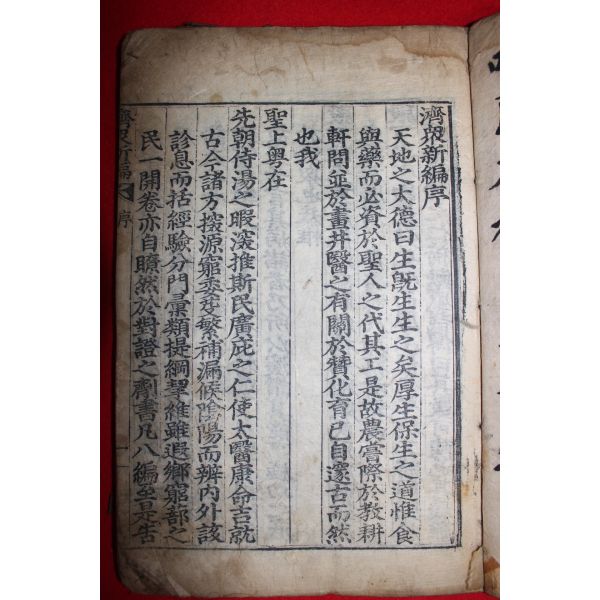 濟眾新編序
天地之大德曰生旣生生之矣厚生保生之道惟食
與藥而必資於聖人之代其工是故農嘗際於敎耕
軒問並於畫井醫之有關於贊化育已自邃古而然
也我
聖上粤在
先朝侍湯之暇深推斯民廣庇之仁使太醫康命吉就
古今諸方探源窮委芟繁補漏候陰陽而辨內外該
診息而括經驗分門彙類提綱挈維雖遐鄕窮蔀之
民一開卷亦自曠然於對證之劑書凡八編至是告
濟眾新編 序 一